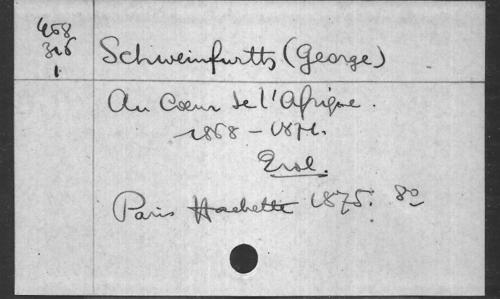 468
316
1
Schweinfurtts (George)
Au Cœur de l'Afrique.
1868-1871.
2 vol.
Paris Hachette 1875. 8º